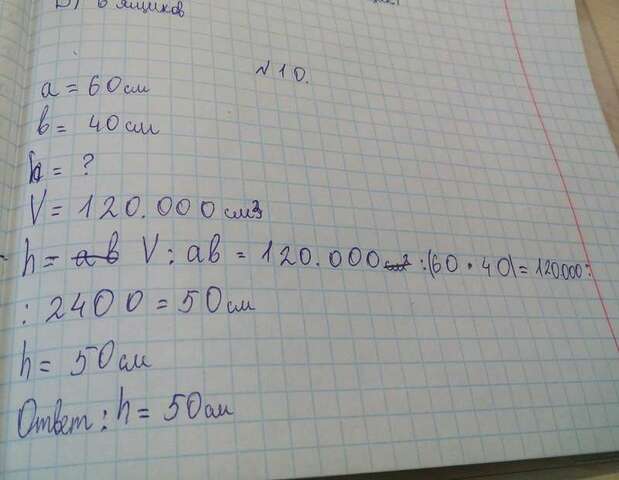 6 ящиков
№ 10.
a = 60 см
b = 40 см
h = ?
V = 120.000 см3
h = ab V : ab = 120.000 см3 : (60 · 40) = 120000 :
: 2400 = 50 см
h = 50 см
Ответ : h = 50 см